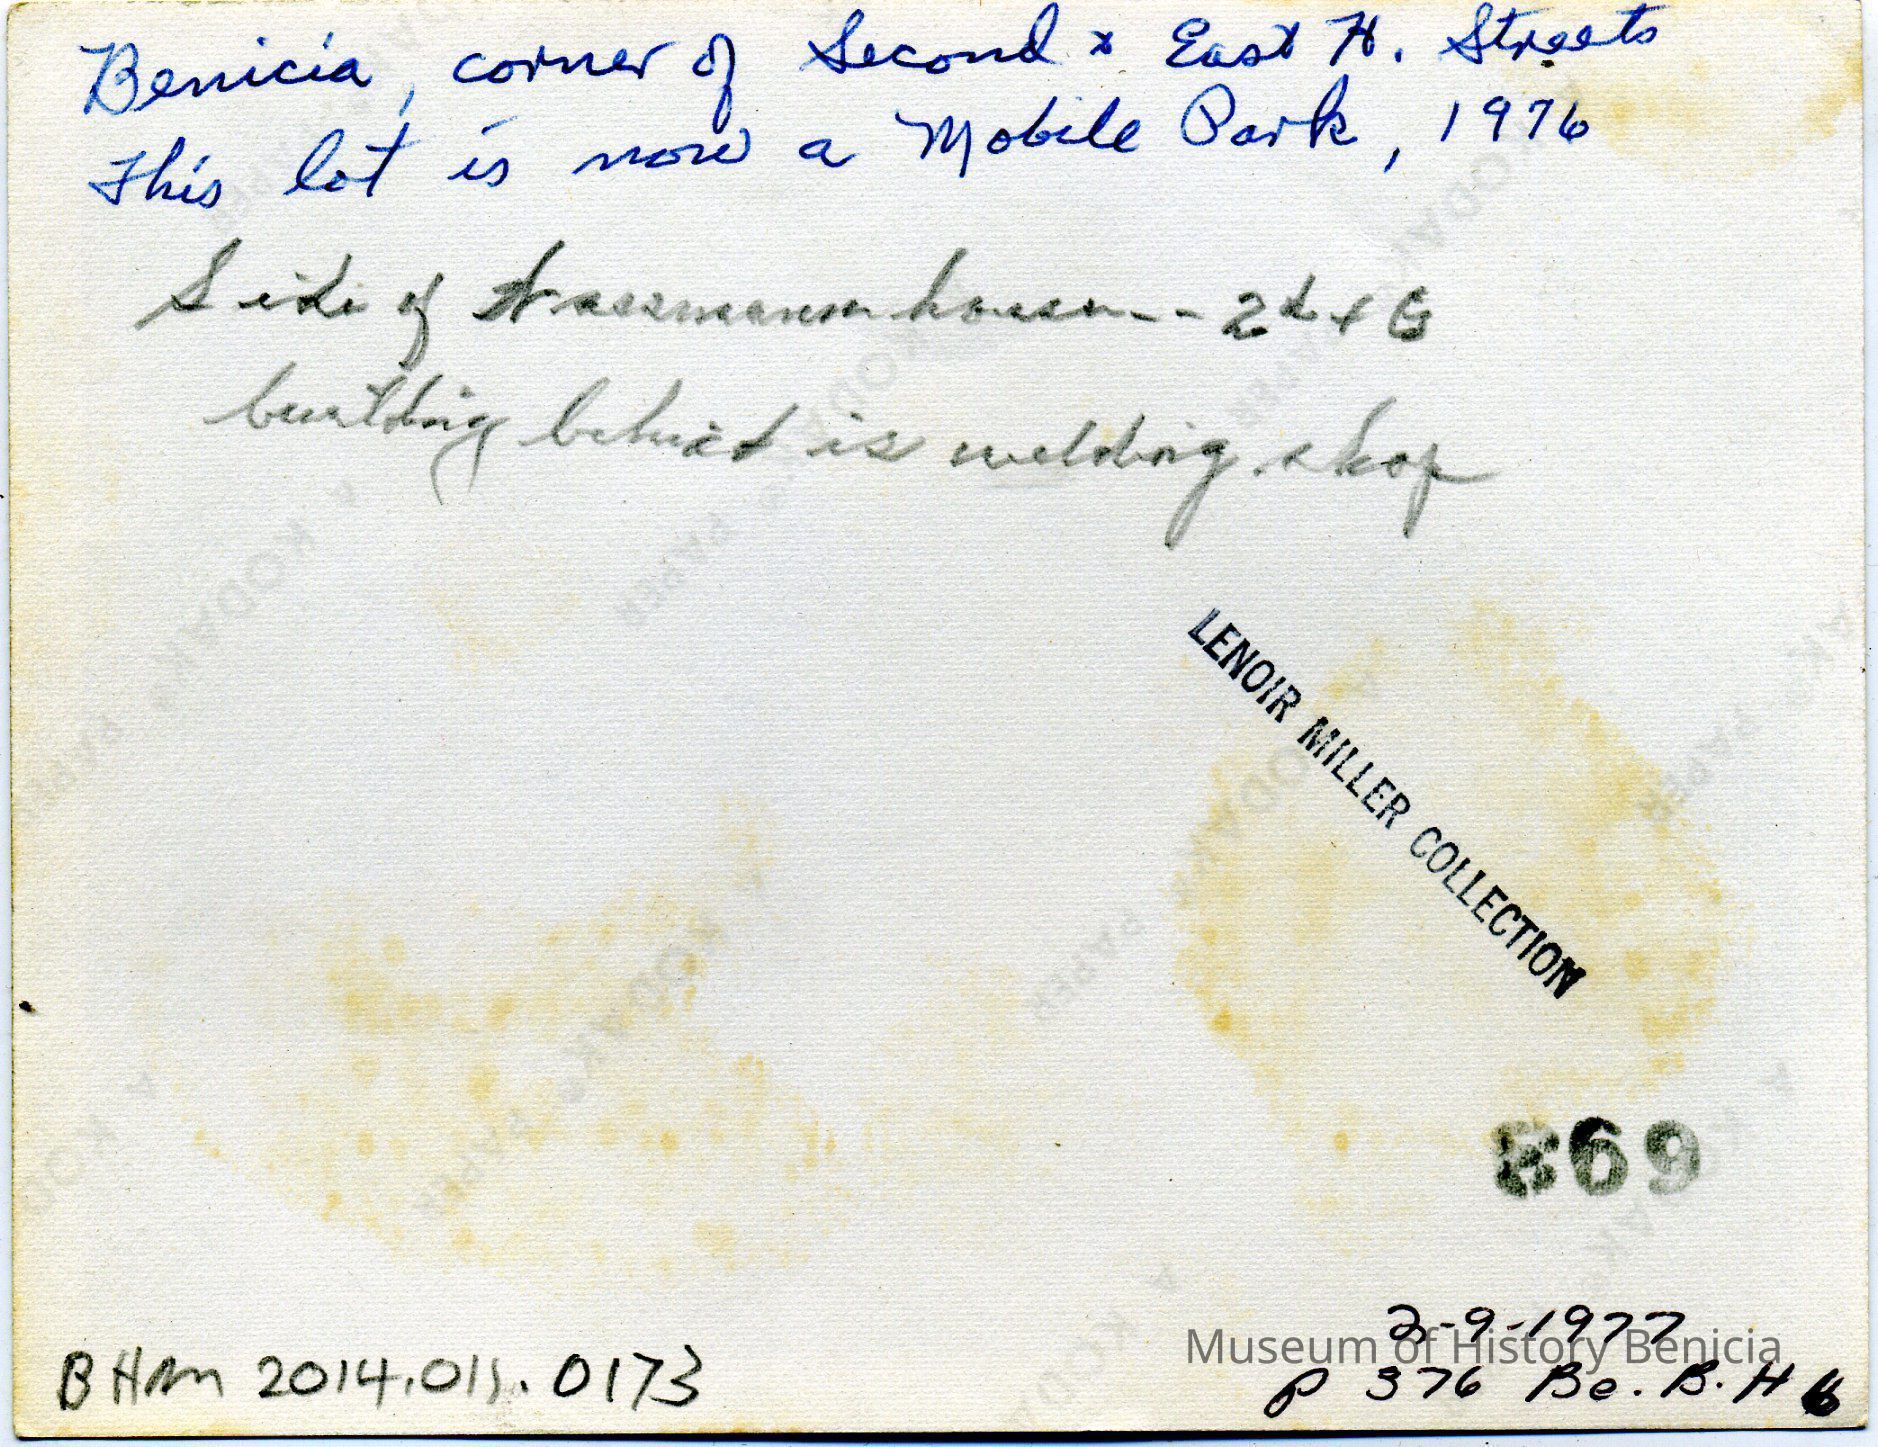 Benicia, corner of Second & East H. Streets
This lot is now a Mobile Park, 1976
Side of Wassmann house -- 2d & G
building behind is welding shop
LENOIR MILLER COLLECTION
869
2-9-1977
Museum of History Benicia
p 376 Be. B. H 6
BHM 2014.011.0173
KODAK PAPER